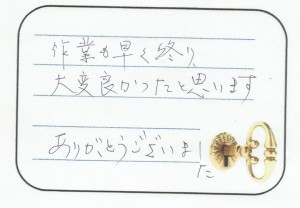 作業も早く終り、
大変良かったと思います
ありがとうございました